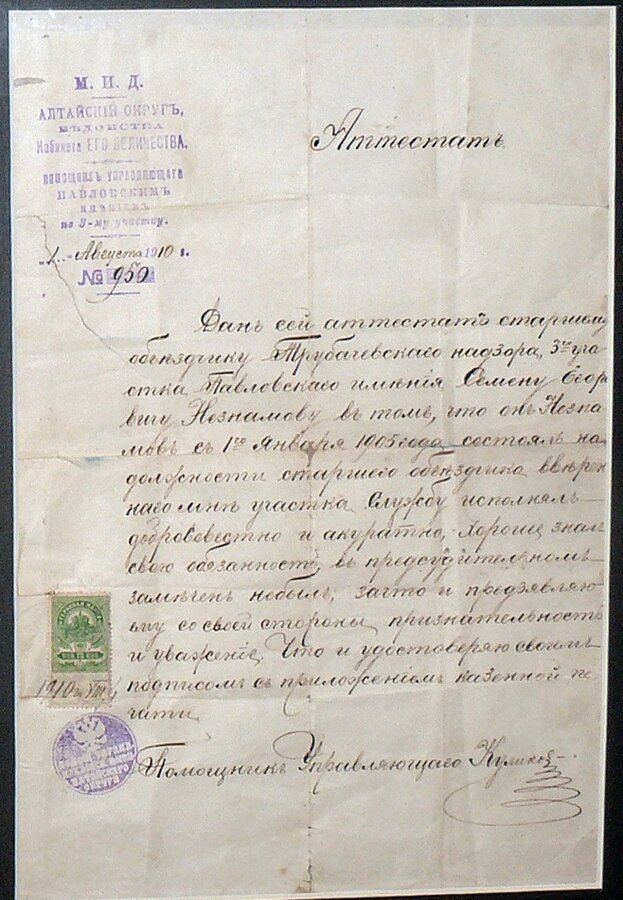 М. И. Д.
АЛТАЙСКІЙ ОКРУГЪ,
ВѢДОМСТВА
Кабинета ЕГО ВЕЛИЧЕСТВА.
ПОМОЩНИКЪ УПРАВЛЯЮЩАГО
ПАВЛОВСКИМЪ
ИМѢНІЕМЪ
по 3-му участку.
1 Августа 1910 г.
№ 950
Аттестатъ
Данъ сей аттестатъ старшему
объѣздчику Трубачевскаго надзора, 3го уча
стка Павловскаго имѣнія Семену Егоро
вичу Незнамову въ томъ, что онъ Незна
мовъ съ 1го Января 1905 года состоялъ на
должности старшаго объѣздчика ввѣрен
наго мнѣ участка. Службу исполнялъ
добросовестно и акуратно. Хорошо зналъ
свою обязанность, въ предсудительномъ
замѣченъ небылъ; за что и предъявляю
ему со своей стороны признательность
и уваженіе. Что и удостоверяю своимъ
подписомъ съ приложеніемъ казенной пе
чати.
Помощникъ Управляющаго Куликов
ГЕРБОВАЯ МАРКА
1910 VIII/1
АЛТАЙСКАГО
ОКРУГА